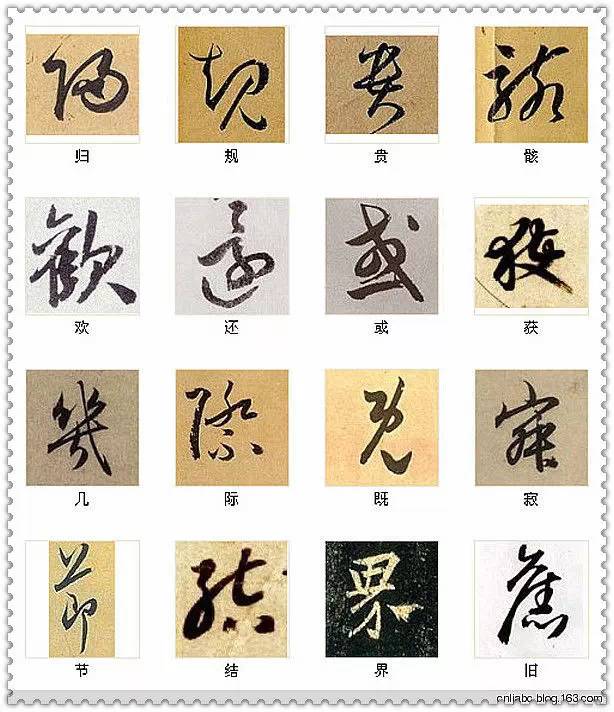 归 规 贵 骸
欢 还 或 获
几 际 既 寂
节 结 界 旧
cnliabc.blog.163.com